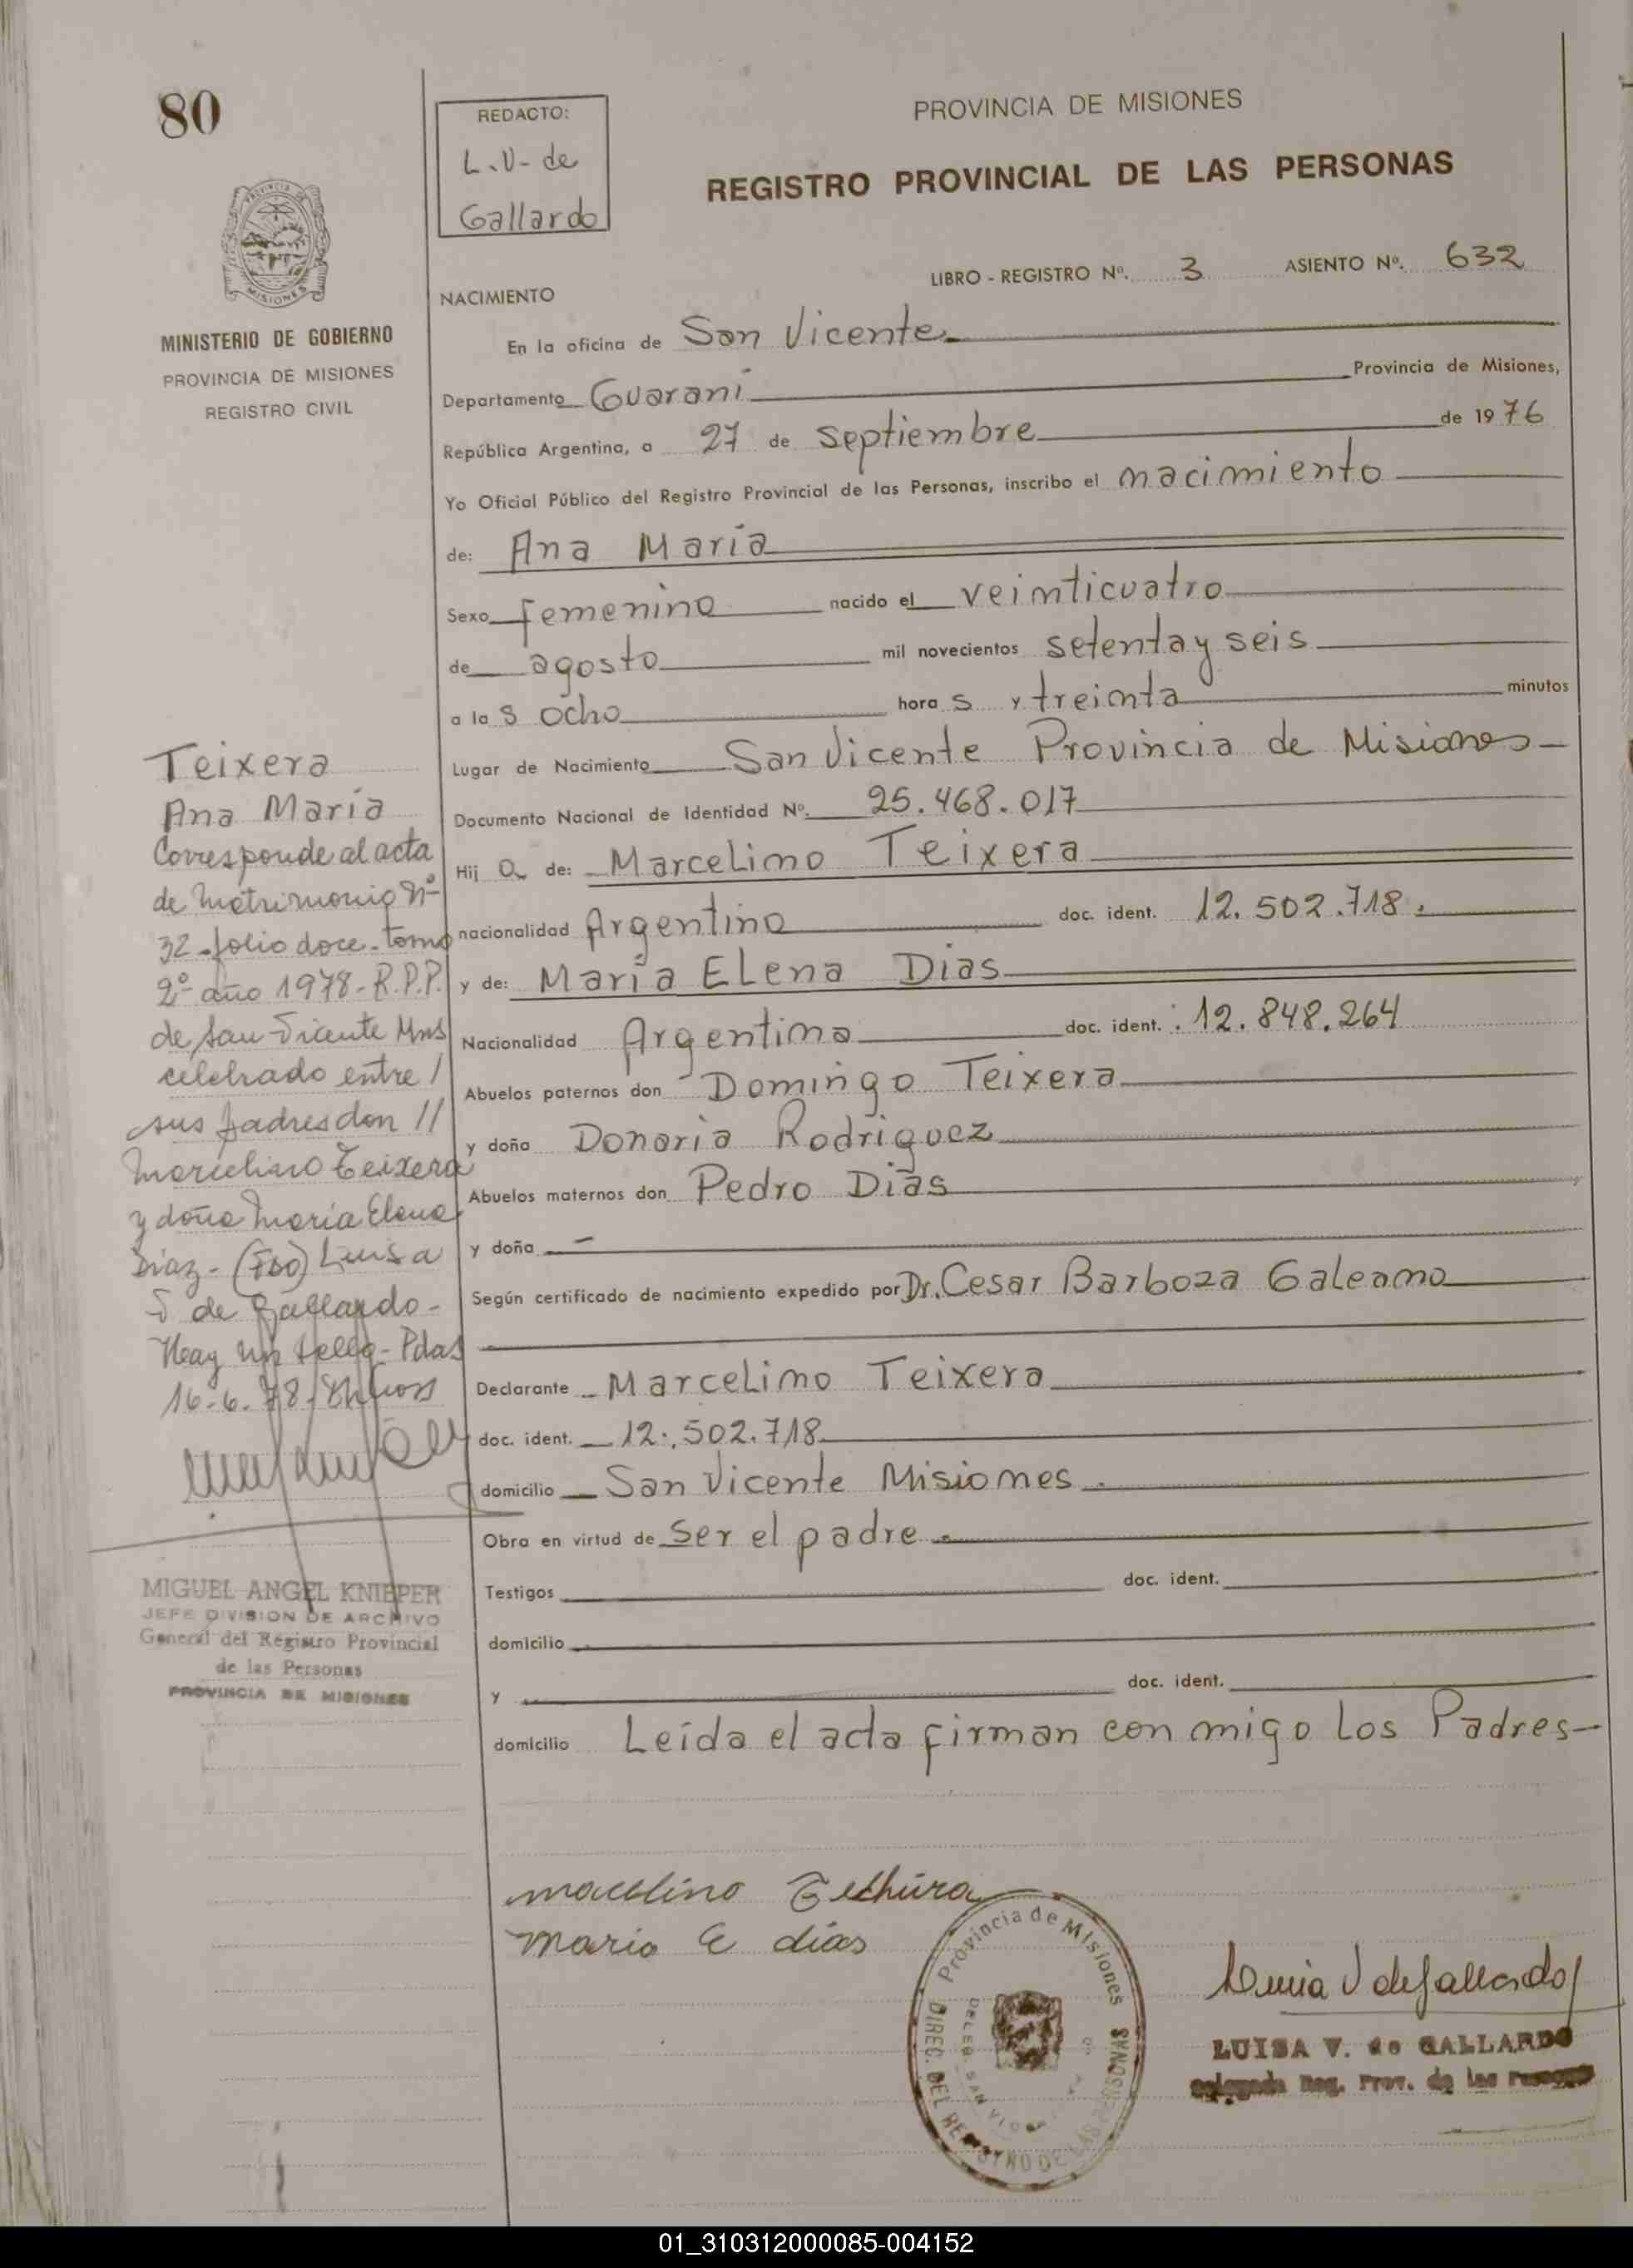 80
REDACTO:
L.V- de
Gallardo
PROVINCIA DE MISIONES
REGISTRO PROVINCIAL DE LAS PERSONAS
LIBRO - REGISTRO Nº. 3 ASIENTO Nº. 632
MISIONES
MINISTERIO DE GOBIERNO
PROVINCIA DE MISIONES
REGISTRO CIVIL
NACIMIENTO
En la oficina de San Vicente
Departamento Guaraní Provincia de Misiones,
República Argentina, a 27 de septiembre de 1976
Yo Oficial Público del Registro Provincial de las Personas, inscribo el nacimiento
de: Ana María
Sexo femenino nacido el veinticuatro
de agosto mil novecientos setenta y seis
a las ocho horas y treinta minutos
Lugar de Nacimiento San Vicente Provincia de Misiones
Documento Nacional de Identidad Nº. 25.468.017
Hija de: Marcelino Teixera
nacionalidad Argentino doc. ident. 12.502.718.
y de: María Elena Dias
Nacionalidad Argentina doc. ident. : 12.848.264
Abuelos paternos don Domingo Teixera
y doña Donaria Rodriguez
Abuelos maternos don Pedro Dias
y doña -
Según certificado de nacimiento expedido por Dr. Cesar Barboza Galeano
Declarante Marcelino Teixera
doc. ident. 12.502.718
domicilio San Vicente Misiones.
Obra en virtud de ser el padre.
Testigos doc. ident.
domicilio
y doc. ident.
domicilio Leída el acta firman con migo los Padres-
Teixera
Ana María
Corresponde al acta
de matrimonio Nº
32-folio doce-tomo
2º año 1978-R.P.P.
de San Vicente Mns
celebrado entre /
sus padres don //
Marcelino Teixera
y doña María Elena
Diaz- (FDO) Luisa
V de Gallardo-
Hay un sello-Pdas
16-6-78-
MIGUEL ANGEL KNIEPER
JEFE DIVISION DE ARCHIVO
General del Registro Provincial
de las Personas
PROVINCIA DE MISIONES
maria E dias
Provincia de Misiones
DIREC. DEL REGISTRO DE LAS PERSONAS
DELEG. SAN VICENTE
Luisa V de Gallardo
LUISA V. de GALLARDO
Delegada Reg. Prov. de las Personas
01_310312000085-004152